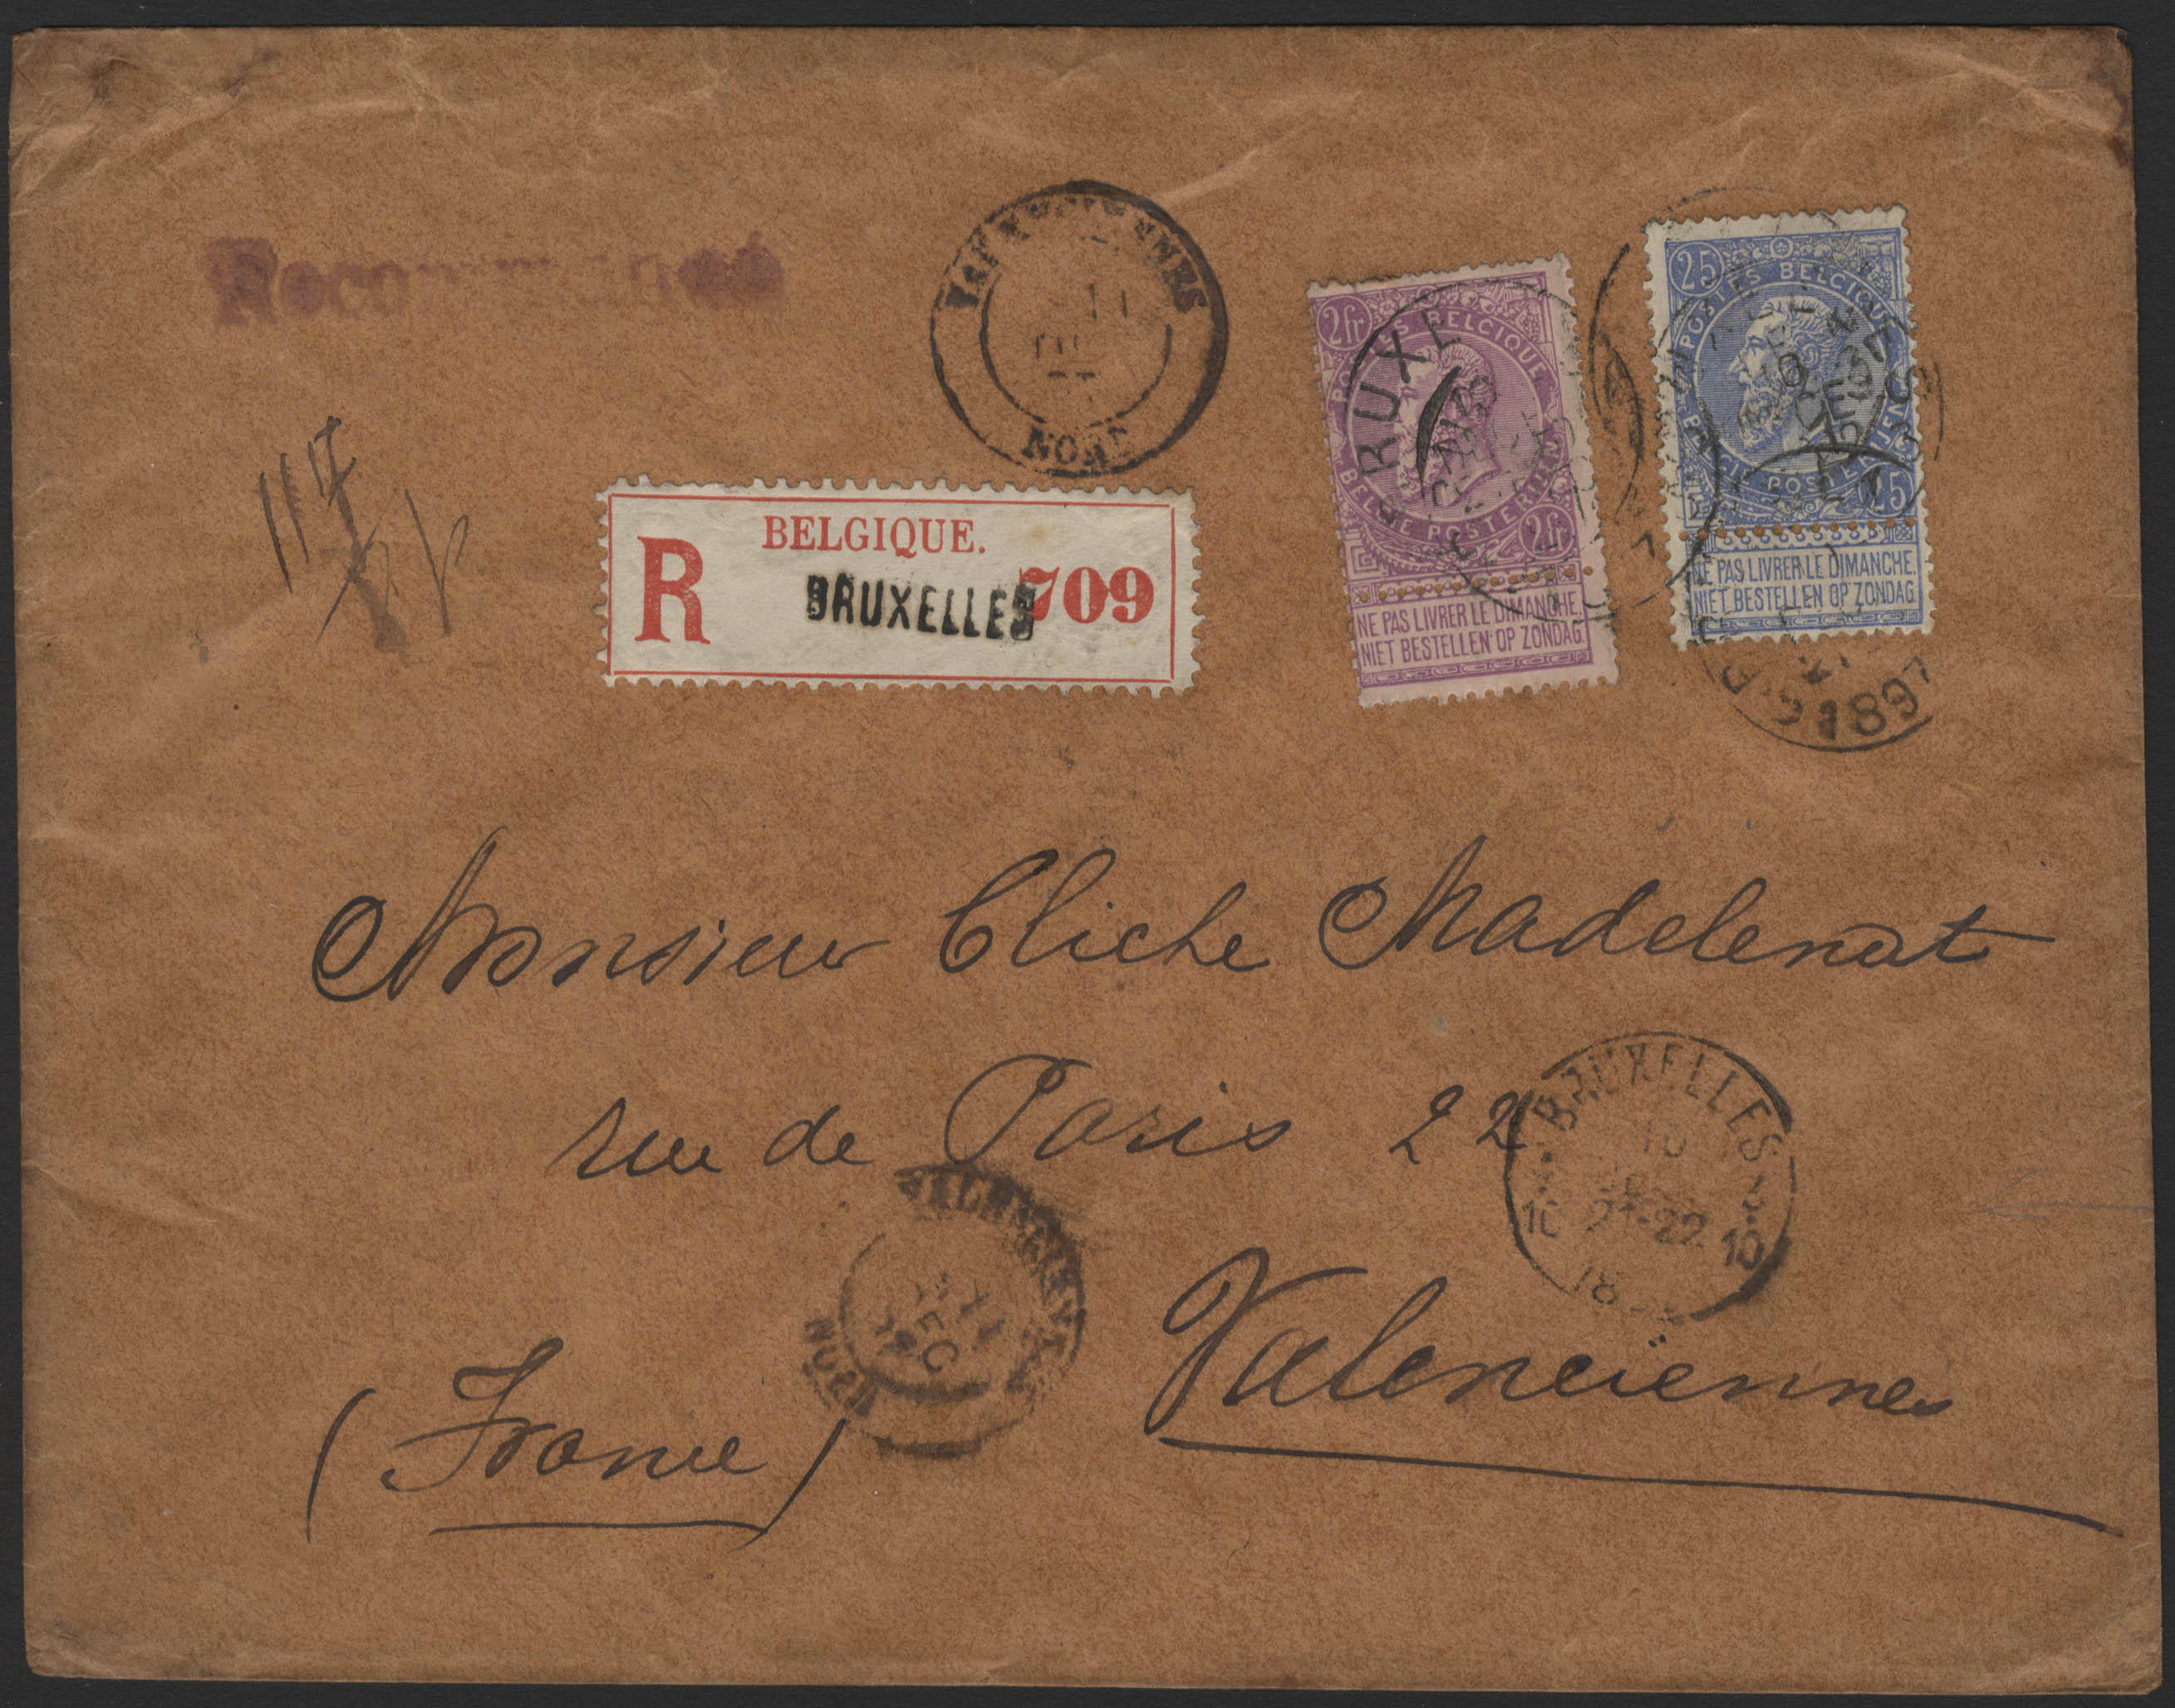 Recommandé
VALENCIENNES
11
NORD
BELGIQUE.
R
BRUXELLES
709
2fr
POSTES BELGIQUE
BELGIE POSTERIJEN
2fr
NE PAS LIVRER LE DIMANCHE
NIET BESTELLEN OP ZONDAG
BRUXEL
25
POSTES BELGIQUE
BELGIE POSTERIJEN
25
NE PAS LIVRER LE DIMANCHE.
NIET BESTELLEN OP ZONDAG
1897
Monsieur Cliche Madelenat
rue de Paris 22
BRUXELLES
10
10 21-22 10
VALENCIENNES
11
DEC
NORD
Valenciennes
(France)